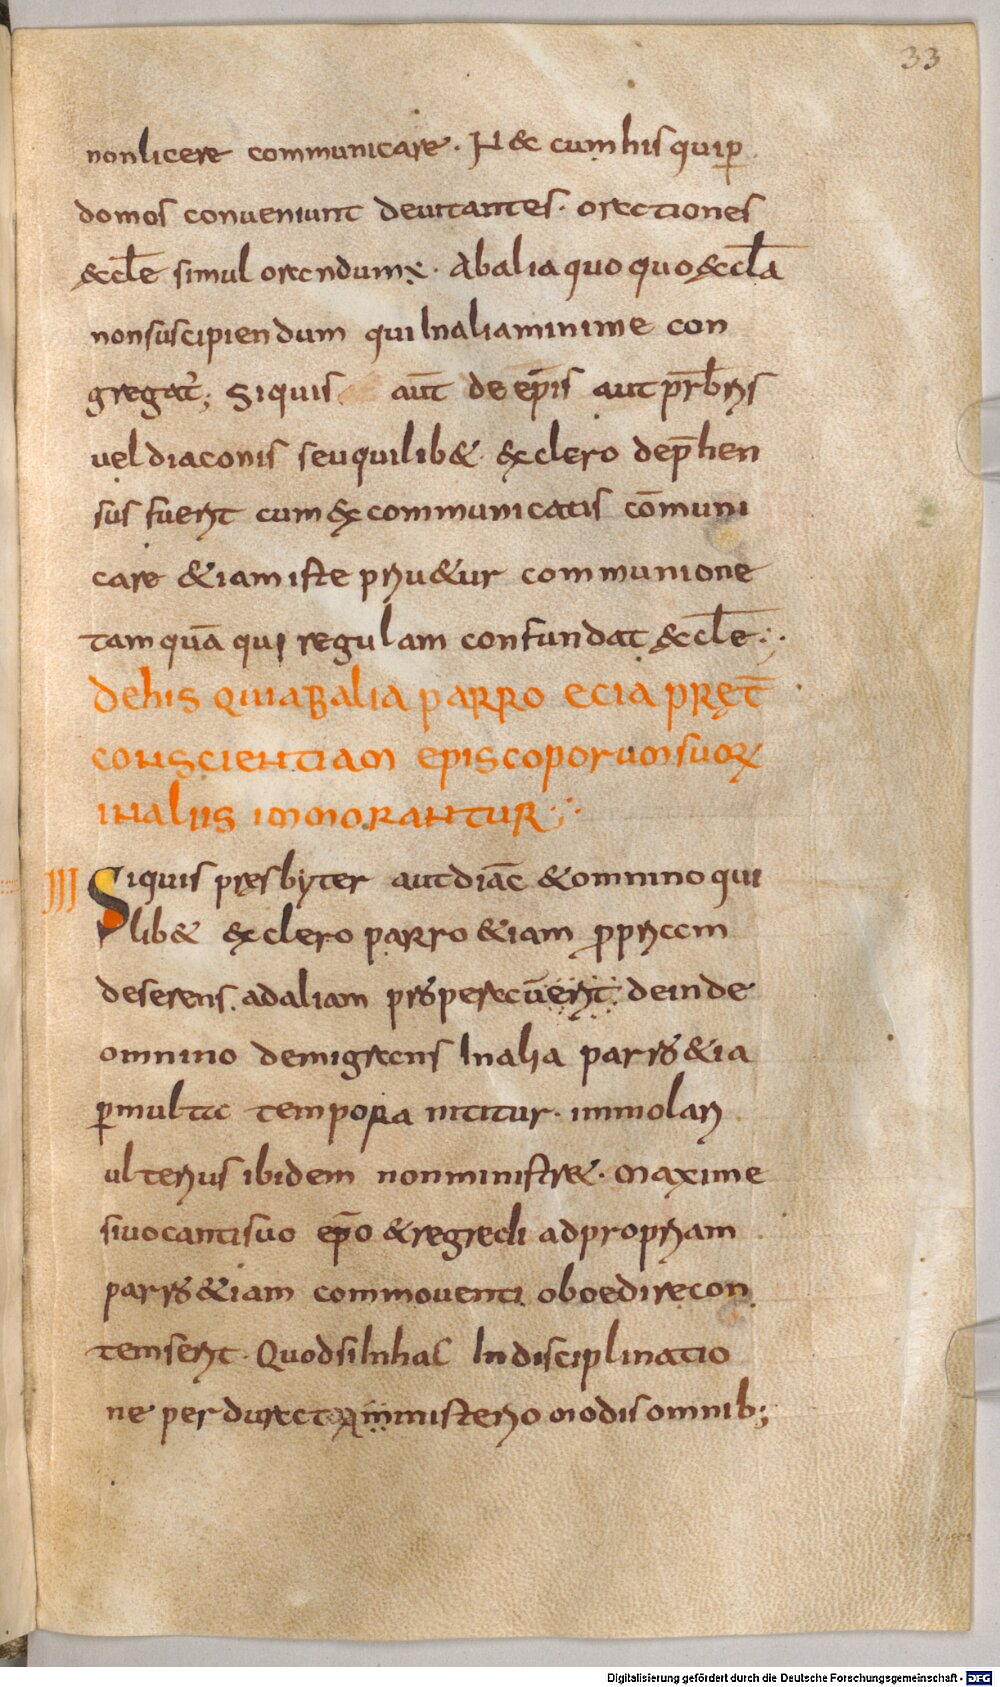 33
nonlicere communicare. N& cumhis quip̱
domos conueniunt deuitantes. orationes
&cłe simul orandumẹ. Abalia quoquo &cła
nonsuscipiendum qui Inaliaminime con
gregat'; Siquis aut̄ de ep̄is aut pr̄bris
uel diaconis seuquilib& exclero dep̄hen
sus fuerit cum excommunicatis cōmuni
care &iam iste priu&ur communione
tamquā qui regulam confundat &cłe:.
dehis quiabalia parroecia pręt̄
conscientiam episcoporumsuoꝝ
inaliis immorantur:.
III Siquis pręsbyter autdiac̄ &omnino qui
lib& exclero parro&iam ꝓpriam
deserens. adaliam
omnino demigrans Inalia
ꝑmulta tempora nititur. immolari
ulterius ibidem nonministr&. Maxime
siuocantisuo ep̄o &regredi adpropriam
commouenti oboedirecon
temserit. Quodsi Inhac Indisciplinatio
ne perdurat ministerio modisomnib;
Digitalisierung gefördert durch die Deutsche Forschungsgemeinschaft - DFG